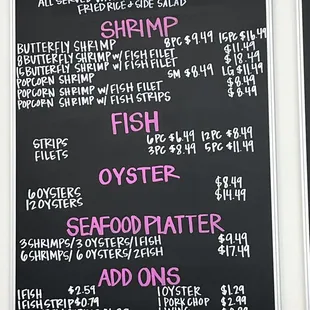 ALL SERVED W/
FRIED RICE & SIDE SALAD
SHRIMP
BUTTERFLY SHRIMP 8PC $9.49 15PC $16.49
8 BUTTERFLY SHRIMP W/ FISH FILET $11.49
15 BUTTERFLY SHRIMP W/ FISH FILET $18.49
POPCORN SHRIMP SM $8.49 LG $11.49
POPCORN SHRIMP W/ FISH FILET $8.49
POPCORN SHRIMP W/ FISH STRIPS $8.49
FISH
STRIPS 6PC $6.49 12PC $8.49
FILETS 3PC $8.49 5PC $11.49
OYSTER
6 OYSTERS $8.49
12 OYSTERS $14.49
SEAFOOD PLATTER
3 SHRIMPS/ 3 OYSTERS/ 1 FISH $9.49
6 SHRIMPS/ 6 OYSTERS/ 2 FISH $17.49
ADD ONS
1 FISH $2.59 1 OYSTER $1.29
1 FISH STRIP $0.79 1 PORK CHOP $2.99